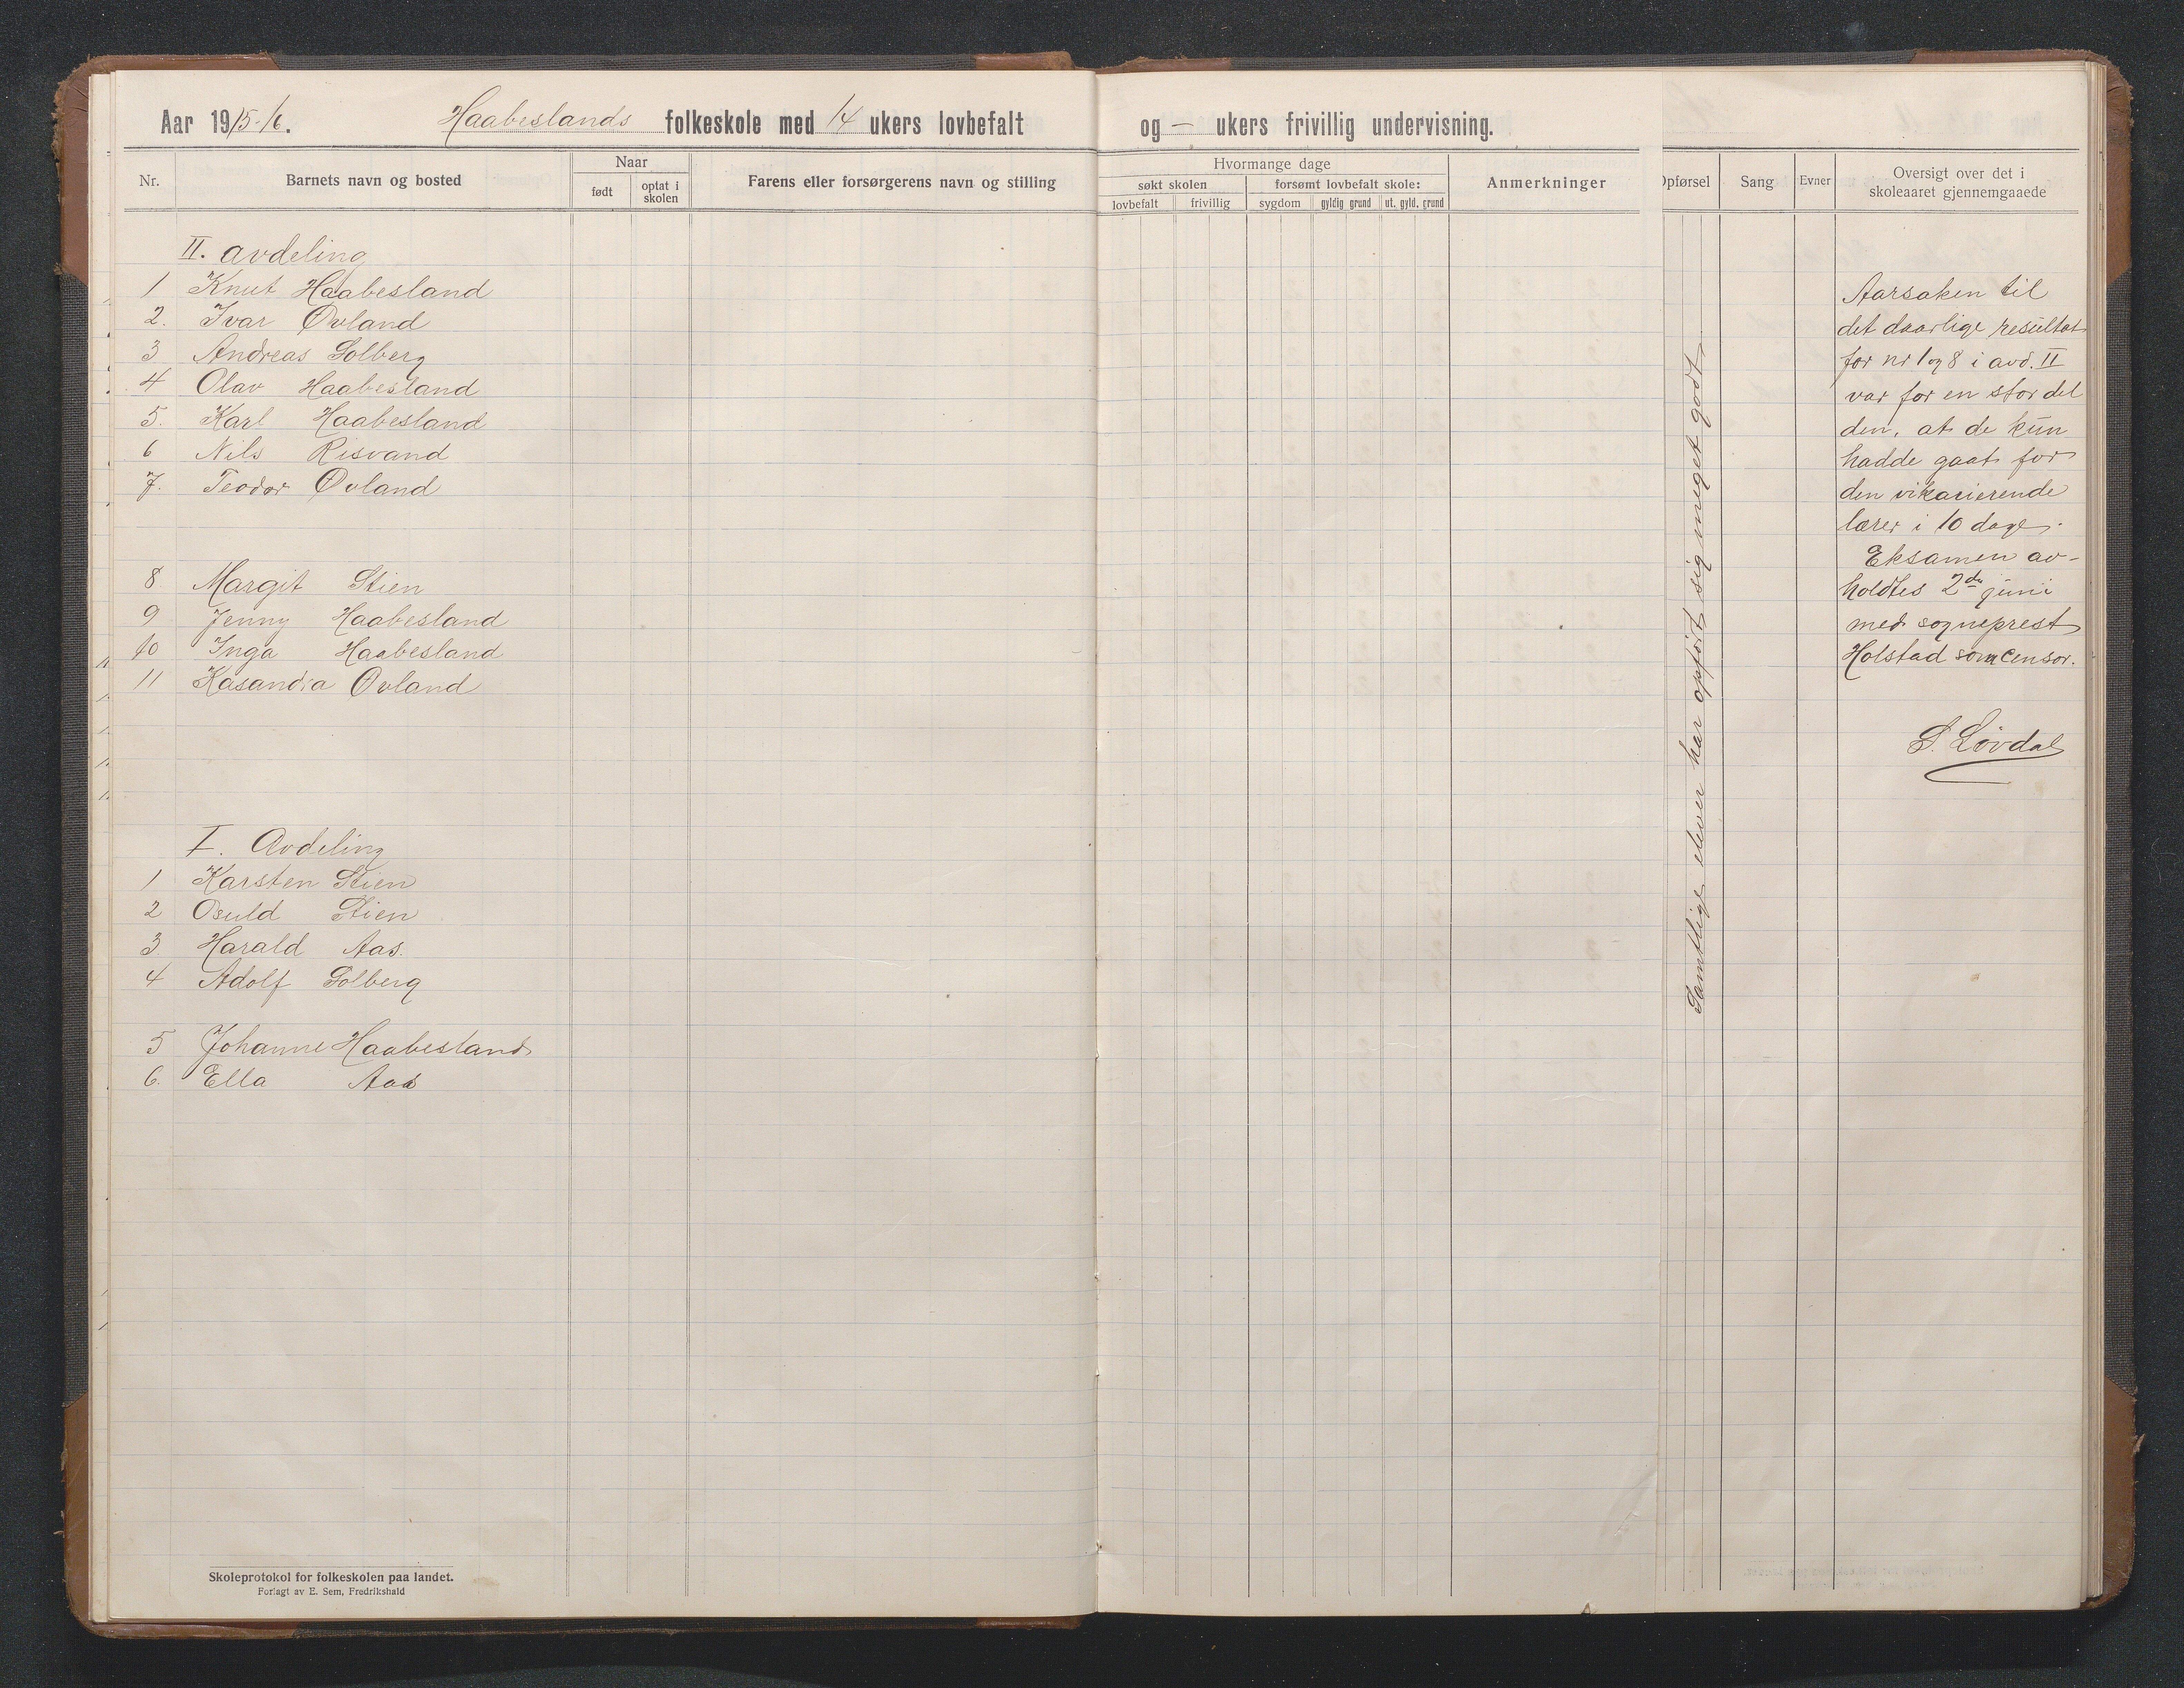 Aar 1915-16. Haabeslands folkeskole med 14 ukers lovbefalt og — ukers frivillig undervisning.
Nr.
Barnets navn og bosted
Naar
født
optat i skolen
Farens eller forsørgerens navn og stilling
Hvormange dage
søkt skolen
forsømt lovbefalt skole:
lovbefalt
frivillig
sygdom
gyldig grund
ut. gyld. grund
Anmerkninger
Opførsel
Sang
Evner
Oversigt over det i
skoleaaret gjennemgaaede
II. avdeling
1 Knut Haabesland
2. Ivar Øvland
3 Andreas Solberg
4 Olav Haabesland
5. Karl Haabesland
6 Nils Risvand
7. Teodor Øvland
8 Margit Stien
9 Jenny Haabesland
10 Inga Haabesland
11 Kasandra Øvland
I. Avdeling
1 Karsten Stien
2 Osuld Stien
3 Harald Aas.
4 Adolf Solberg
5 Johanne Haabesland
6. Ella Aas
Samtlige elever har opført sig meget godt
Aarsaken til
det daarlige resultat
for nr 1 og 8 i avd. II
var for en stor del
den, at de kun
hadde gaat for
den vikarierende
lærer i 10 dage.
Eksamen av-
holdtes 2den juni
med sogneprest
Holstad som censor.
S. Løvdal
Skoleprotokol for folkeskolen paa landet.
Forlagt av E. Sem, Fredrikshald